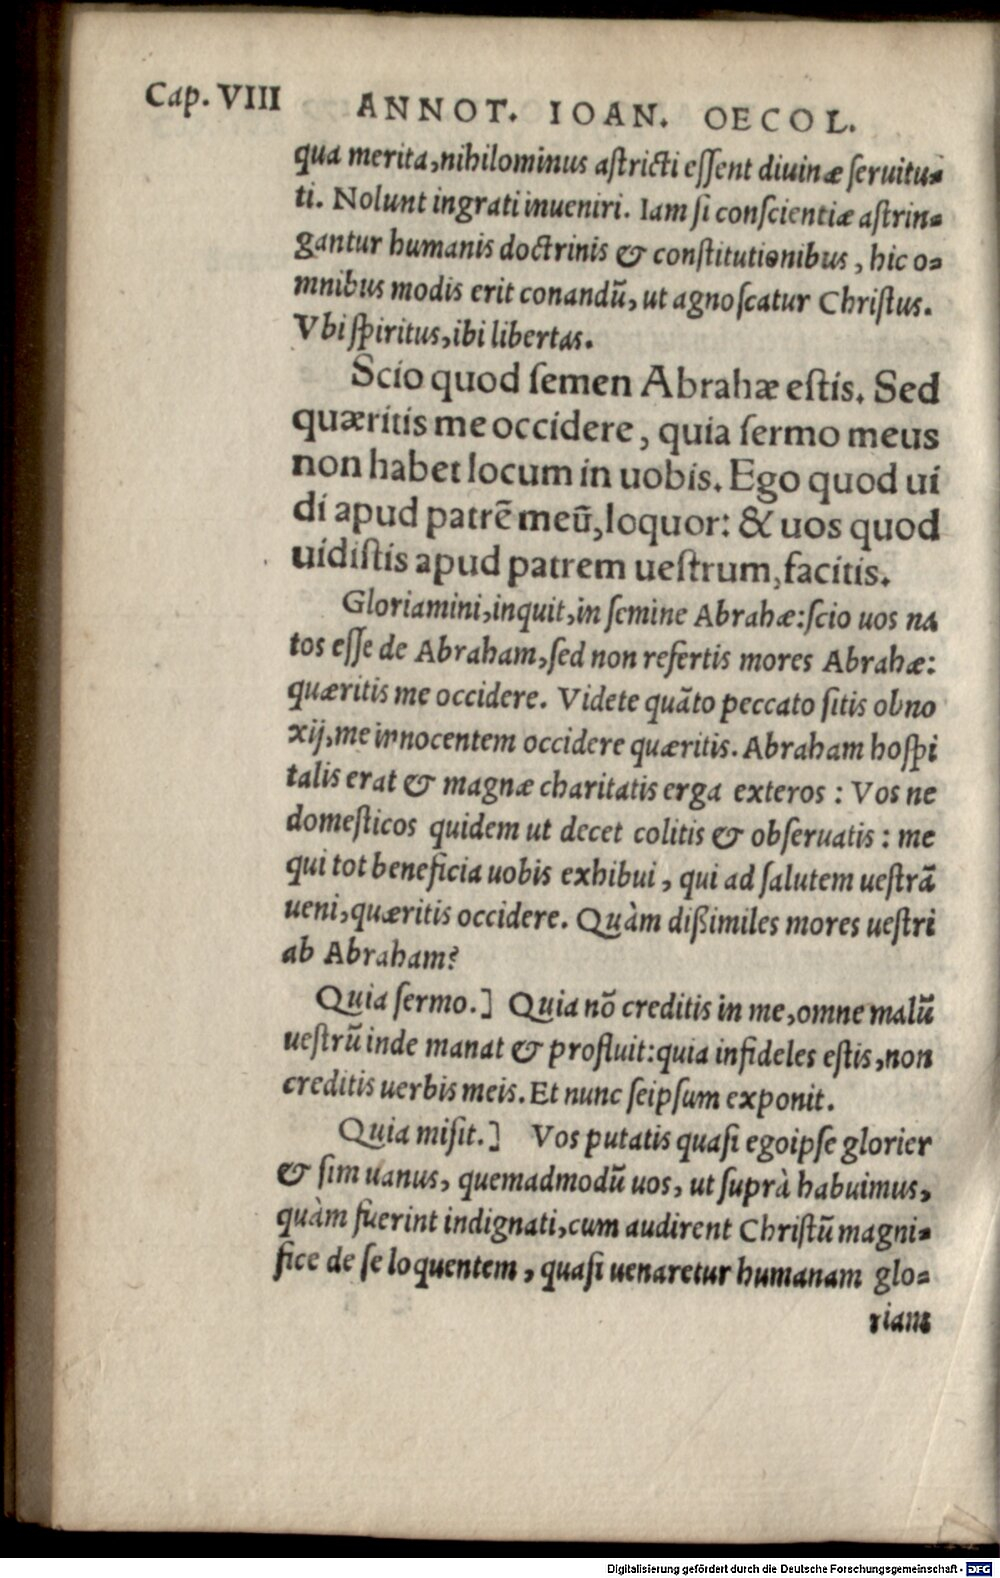 Cap. VIII
ANNOT. IOAN. OECOL.
qua merita, nihilominus aſtricti eſſent diuinæ ſeruitu-
ti. Nolunt ingrati inueniri. Iam ſi conſcientiæ aſtrin-
gantur humanis doctrinis & conſtitutionibus, hic o-
mnibus modis erit conandū, ut agnoſcatur Chriſtus.
Vbi ſpiritus, ibi libertas.
Scio quod ſemen Abrahæ eſtis. Sed
quæritis me occidere, quia ſermo meus
non habet locum in uobis. Ego quod ui
di apud patrē meū, loquor: & uos quod
uidiſtis apud patrem ueſtrum, facitis.
Gloriamini, inquit, in ſemine Abrahæ: ſcio uos na
tos eſſe de Abraham, ſed non refertis mores Abrahæ:
quæritis me occidere. Videte quāto peccato ſitis obno
xij, me innocentem occidere quæritis. Abraham hoſpi
talis erat & magnæ charitatis erga exteros: Vos ne
domeſticos quidem ut decet colitis & obſeruatis: me
qui tot beneficia uobis exhibui, qui ad ſalutem ueſtrā
ueni, quæritis occidere. Quàm dißimiles mores ueſtri
ab Abraham?
Quia ſermo.] Quia nō creditis in me, omne malū
ueſtrū inde manat & profluit: quia infideles eſtis, non
creditis uerbis meis. Et nunc ſeipſum exponit.
Quia miſit.] Vos putatis quaſi egoipſe glorier
& ſim uanus, quemadmodū uos, ut ſuprà habuimus,
quàm fuerint indignati, cum audirent Chriſtū magni-
fice de ſe loquentem, quaſi uenaretur humanam glo-
riam
Digitalisierung gefördert durch die Deutsche Forschungsgemeinschaft - DFG